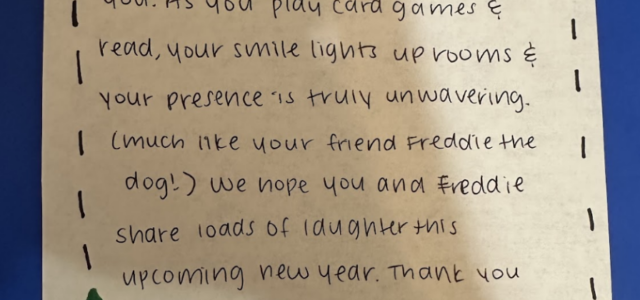 you. As you play card games &
read, your smile lights up rooms &
your presence is truly unwavering.
(much like your friend Freddie the
dog!) We hope you and Freddie
share loads of laughter this
upcoming new year. Thank you